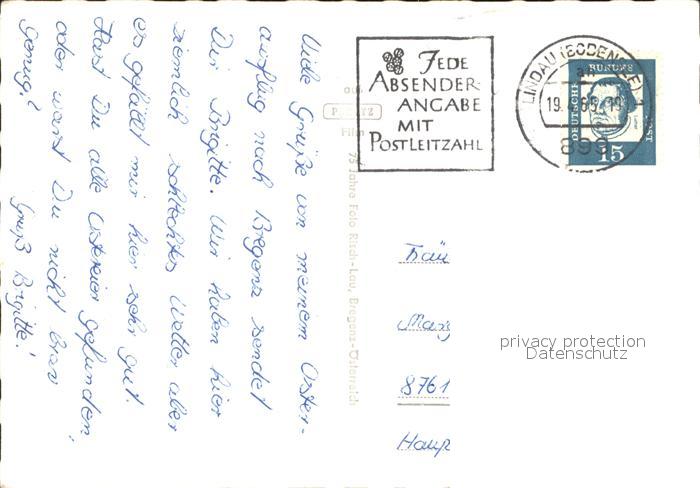 Viele Grüße von meinem Oster-
ausflug nach Bregenz sendet
Dir Brigitte. Wir haben hier
ziemlich schlechtes Wetter, aber
es gefällt mir hier sehr gut.
Hast Du alle Ostereier gefunden,
oder warst Du nicht brav
genug?
Gruß Brigitte!
75 Jahre Foto Risch-Lau, Bregenz-Österreich
auf
Film
JEDE
ABSENDER-
ANGABE
MIT
POSTLEITZAHL
LINDAU (BODENSEE) 1
an
899
DEUTSCHE BUNDESPOST
15
Fräu
8761
privacy protection
Datenschutz